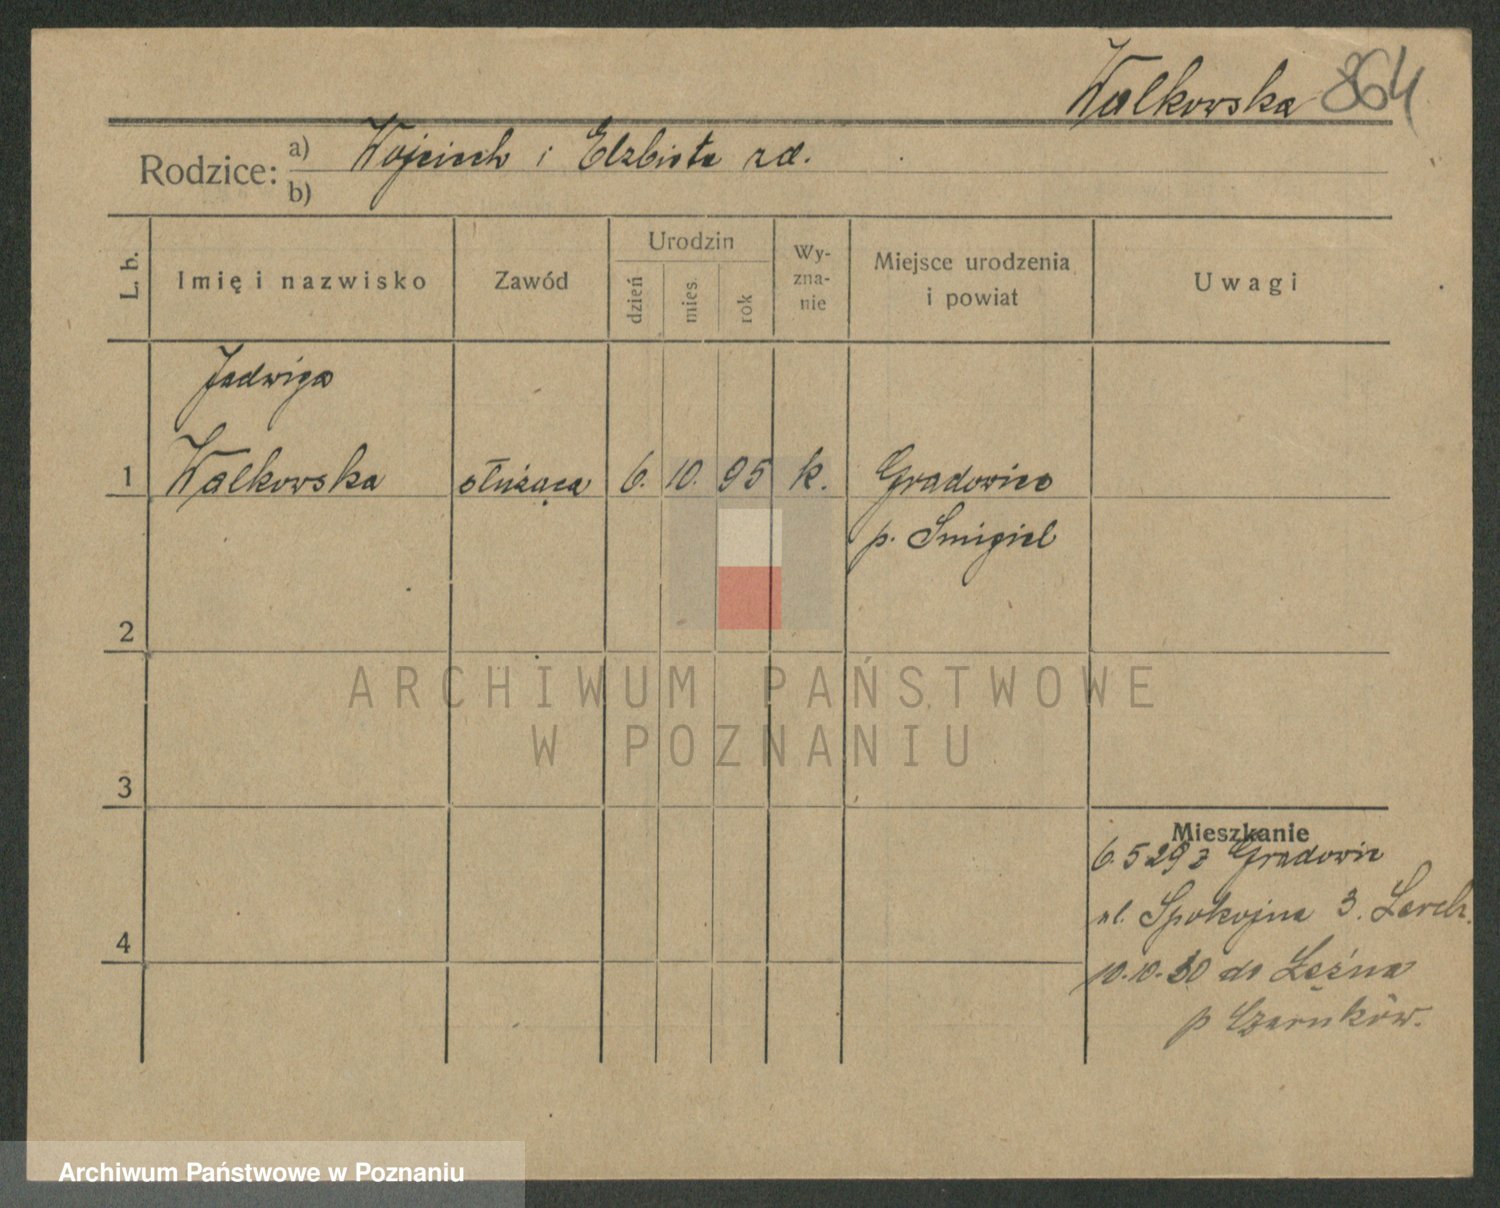 Walkowska 864
Rodzice: a) Wojciech i Elżbieta zd.
b)
L. b.
Imię i nazwisko
Zawód
Urodzin
dzień
mies.
rok
Wy-
zna-
nie
Miejsce urodzenia
i powiat
Uwagi
Jadwiga
1 Walkowska służąca 6. 10. 95 k. Gradowice
p. Śmigiel
2
ARCHIWUM PAŃSTWOWE
W POZNANIU
3
Mieszkanie
6.5 29 z Gradowic
ul. Spokojna 3.
4
10.10.30 do
p Czarnków.
Archiwum Państwowe w Poznaniu